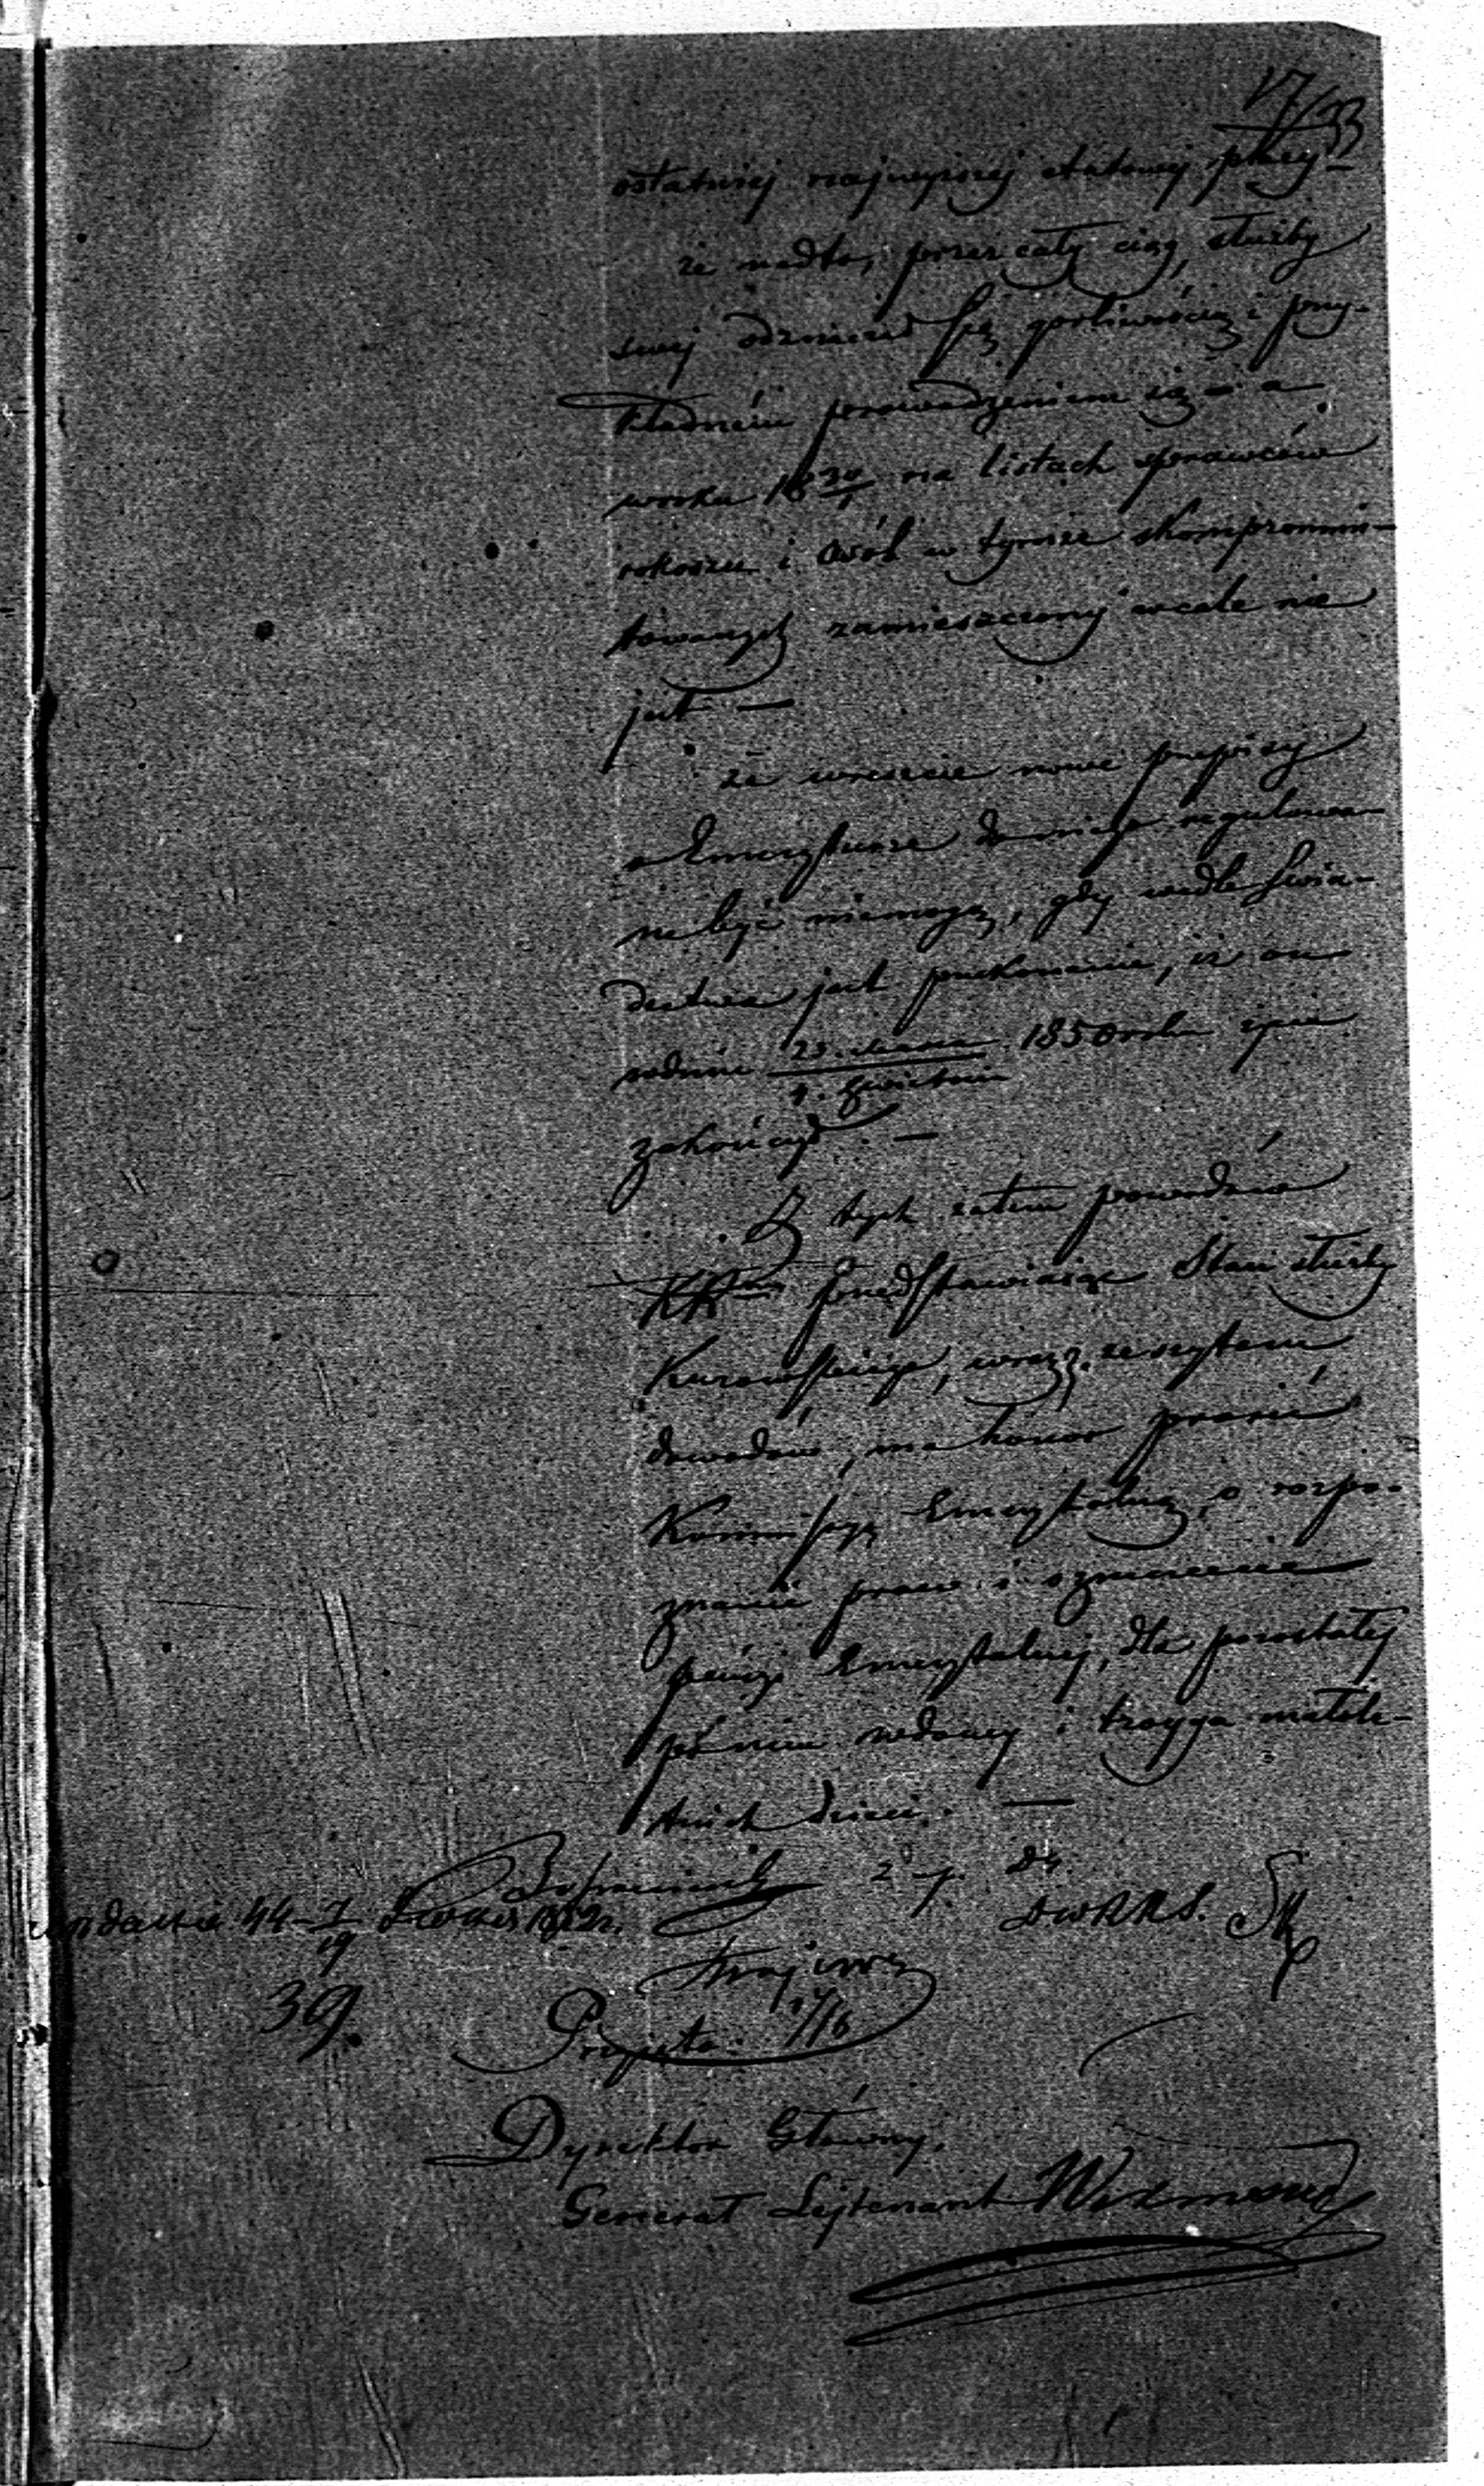 17/33
ostatniej najwyższej etatowej płacy –
że nadto, przez cały ciąg służby
swej odznaczał się gorliwością i przy-
kładném prowadzeniem się – a
w roku 1830/1 na listach sprawców
rokoszu i osób w tymże skompromi-
towanych zamieszczony wcale nie
jest —
że wreszcie nowe przepisy
o Emeryturze do niego regulowa-
ne być niemogą, gdy wedle świa-
dectwa jest przekonanie, iż on
w dniu 23. Marca / 4. Kwietnia 1850 roku życie
zakończył. —
Z tych zatem powodów
przedstawiając Stan służby
Kurowskiego, wraz z zeszytem
dowodów, ma honor prosić
Kommissyą Emerytalną, o rozpo-
znanie praw i wyznaczenie
pensyi Emerytalnej, dla pozostałej
po nim wdowy i trojga małole-
tnich dzieci. —
39.
Przyjęto. 17/6
Dyrektor Główny,
Generał Lejtenant